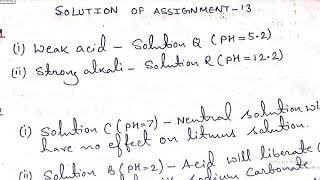 SOLUTION OF ASSIGNMENT-13
(i) Weak acid - Solution Q (PH=5.2)
(ii) Strong alkali - Solution R (PH=12.2)
(i) Solution C (PH=7) - Neutral solution wi
have no effect on litmus solution.
(ii) Solution B (PH=2) - Acid will liberate
sodium carbonate